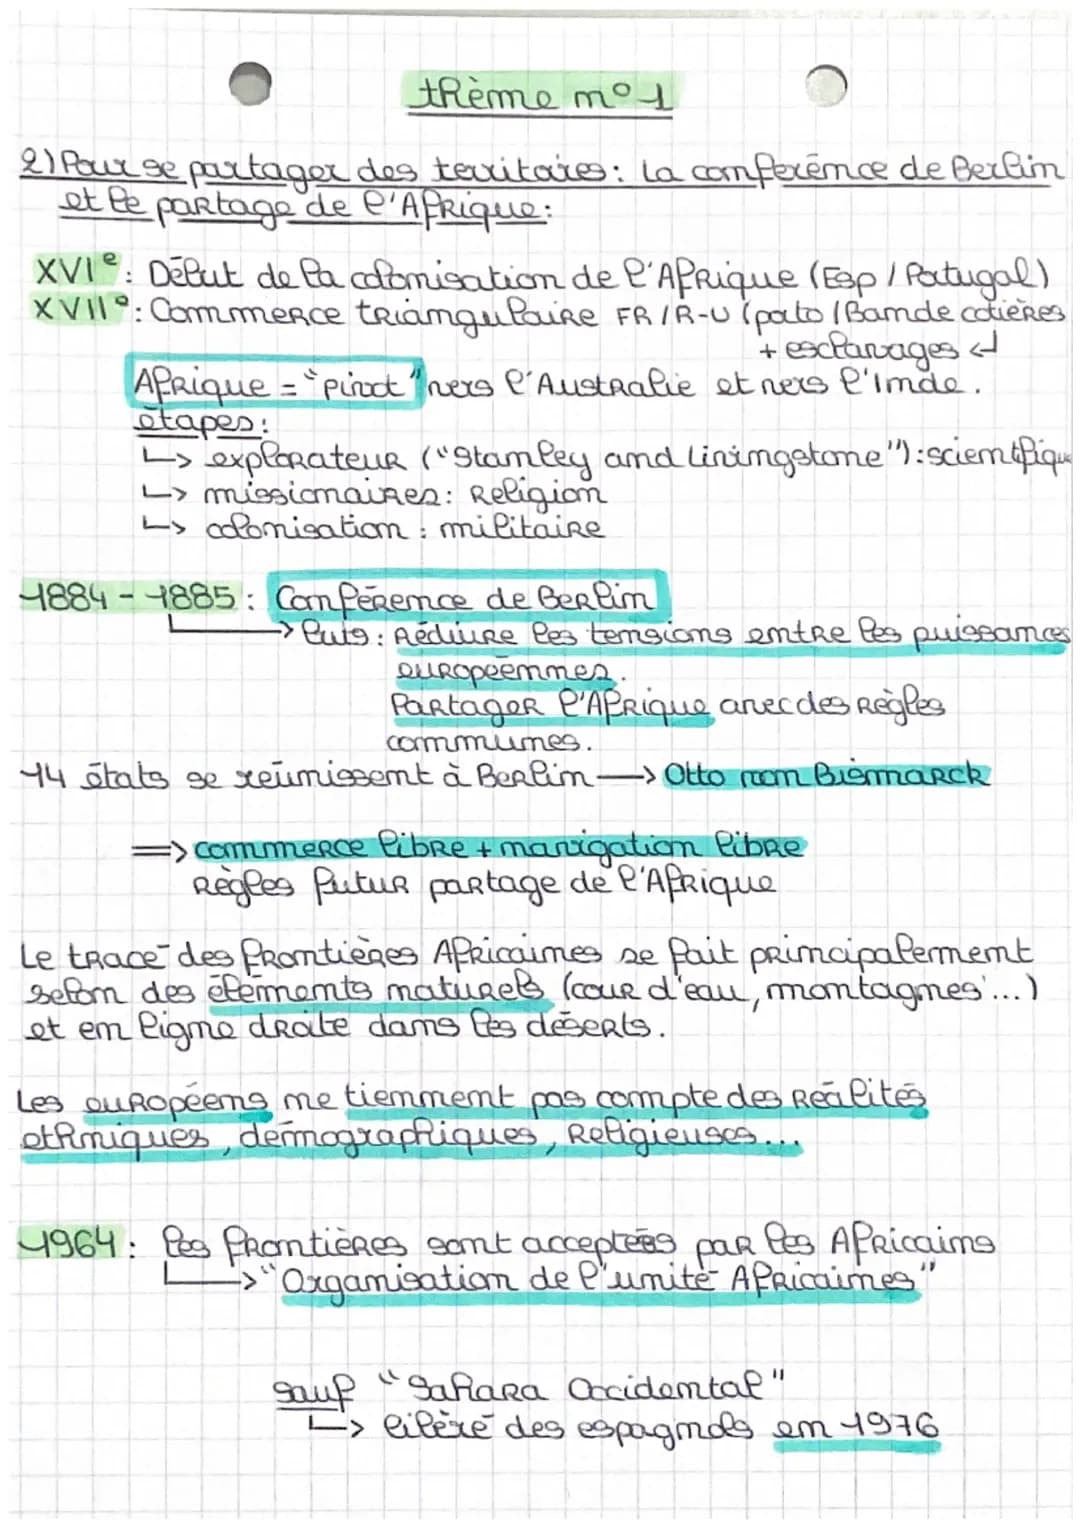 thème n°1
2) Pour se partager des territoires : la conférence de Berlin
et le partage de l'Afrique :
XVIe : Début de la colonisation de l'Afrique (Esp / Portugal)
XVIIe : Commerce triangulaire FR / R-U (pato / Bande cotières
+ esclavages ↵
Afrique = "pivot" vers l'Australie et vers l'Inde.
étapes :
↳ explorateur ("Stanley and Livingstone") : scientifique
↳ missionnaires : Religion
↳ colonisation : militaire
1884 - 1885 : Conférence de Berlin
↳ buts : Réduire les tensions entre les puissances
européennes.
Partager l'Afrique avec des règles
communes.
14 états se réunissent à Berlin → Otto von Bismarck
⇒ commerce libre + navigation libre
Règles futur partage de l'Afrique
Le tracé des frontières Africaines se fait principalement
selon des éléments naturels (cour d'eau, montagnes...)
et en ligne droite dans les déserts.
Les européens ne tiennent pas compte des réalités
ethniques, démographiques, Religieuses...
1964 : les frontières sont acceptées par les Africains
↳ "Organisation de l'unité Africaines"
sauf "Sahara Occidental"
↳ libéré des espagnols en 1976